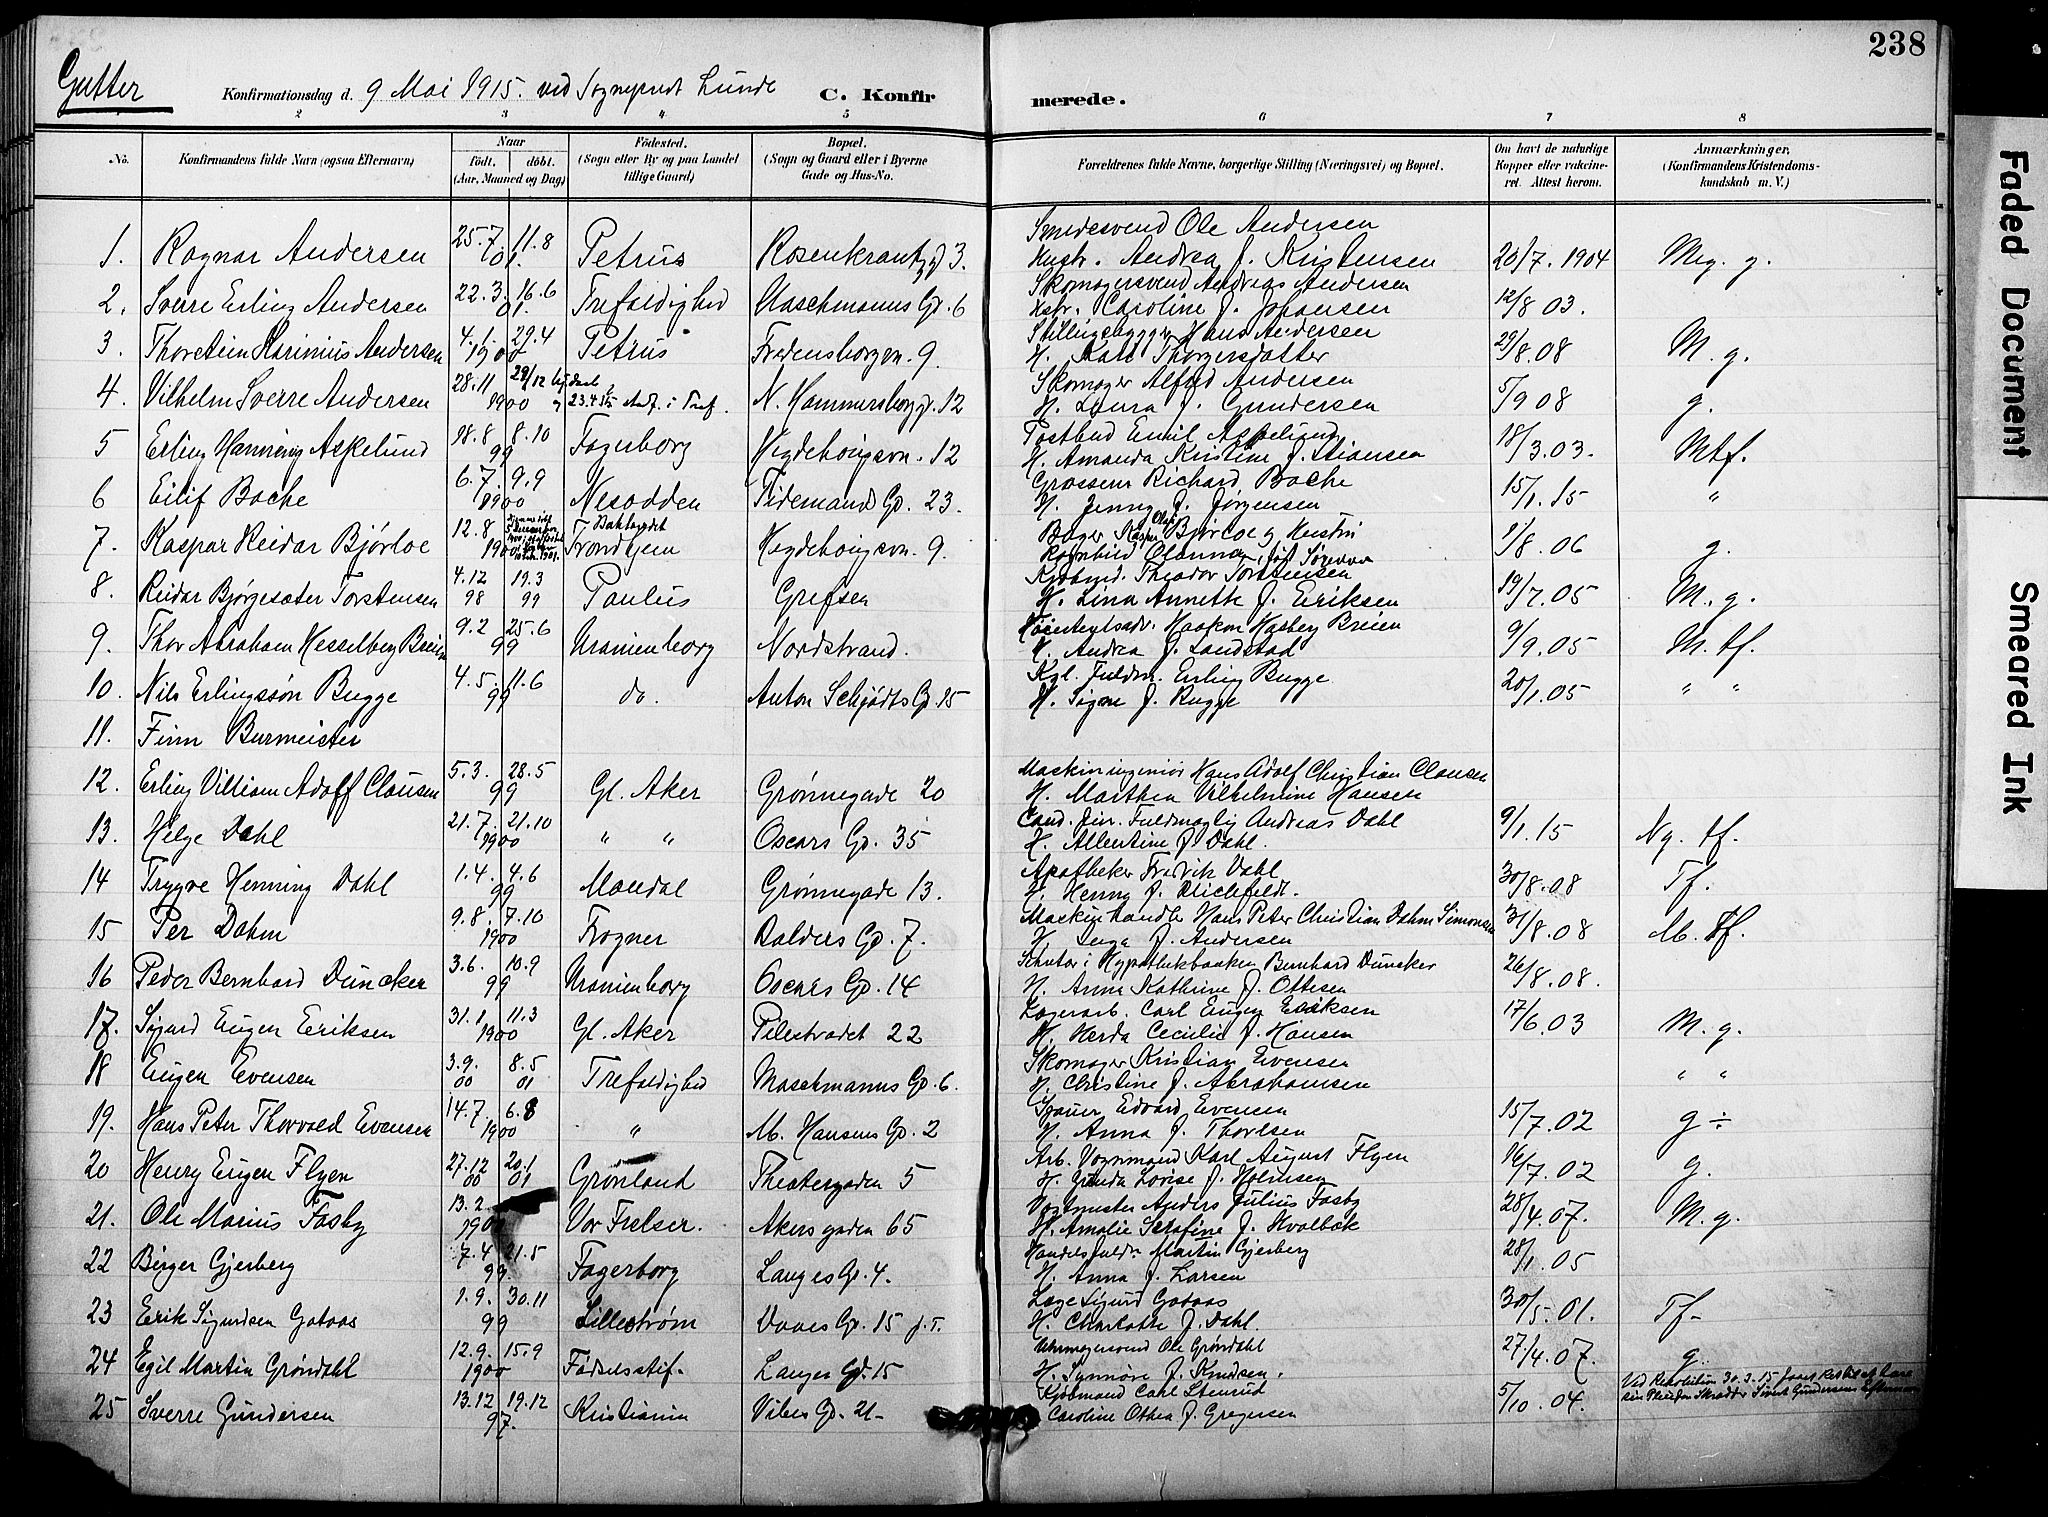 238
Gutter
Konfirmationsdag d. 9 Mai 1915. ved Sogneprest Lunde C. Konfirmerede.
1 2 3 4 5 6 7 8
No. Konfirmandens fulde Navn (ogsaa Efternavn) Naar født, døbt. (Aar, Maaned og Dag) Fødested. (Sogn eller By og paa Landet tillige Gaard) Bopæl. (Sogn og Gaard eller i Byerne Gade og Hus-No. Forældrenes fulde Navne, borgerlige Stilling (Næringsvei) og Bopæl. Om havt de naturlige Kopper eller vakcineret. Attest herom. Anmærkninger, (Konfirmandens Kristendomskundskab m. V.)
1. Ragnar Andersen 25.7 11.8 01. Petrus Rosenkrantzgd 3. Smedesvend Ole Andersen Hustr. Andrea f. Kristensen 20/7. 1904 Meg. g.
2. Sverre Erling Andersen 22.3. 16.6 01. Trefoldighed Maschmanns Gd. 6 Skomagersvend Andreas Andersen Hstr. Caroline f. Johansen 12/8 03.
3. Thorstein Marinius Andersen 4.1. 29.4 1900 Petrus Fredensborgvn. 9. Hans Andersen H. Kari Thorgersdatter 29/8.08 M. g.
4. Vilhelm Sverre Andersen 28.11 29/12 1900 N. Hammersborggd. 12 Skomager Alfred Andersen H. Laura f. Gundersen 5/9 08 g.
5 Erling Henning Askelund 18.8 8.10 99 Fagerborg Hegdehougsvn. 12 Postbud Emil Askelund H. Amanda Kristine f. Stiansen 18/3.03. Mtf.
6 Eilif Bache 6.7. 9.9 1900 Nesodden Tidemands Gd. 23. Grosserer Richard Bache H. Jenny f. Jørgensen 15/1.15 "
7. Kaspar Reidar Bjørloe 12.8 1900 Baklandet Trondhjem Hegdehougsvn. 9. Bager Kasper Olaf Bjørloe og Hustru Ragnhild Olianna, født Sørensen 1/8.06 g.
8. Reidar Bjørgesæter Torstensen 4.12 98 19.3 99 Paulus Grefsen Kjøbmd. Theodor Torstensen H. Lina Annette f. Eriksen 19/7.05 M. g.
9. Thor Abraham Hesselberg Breien 9.2 25.6 99 Uranienborg Nordstrand. Høiesteretsadv. Haakon Hasberg Breien H. Andrea f. Landstad 9/9.05 M. tf.
10. Nils Erlingssøn Bugge 4.5. 11.6 99 do. Anton Schjødts Gd. 15 Kgl. Fuldm. Erling Bugge H. Signe f. Bugge 20/1.05 " "
11. Finn Burmeister
12. Erling Villiam Adolf Clausen 5.3. 28.5 99 Gl. Aker Grønnegade 20 Maskiningeniør Hans Adolf Christian Clausen H. Marthea Vilhelmine Hansen
13. Helge Dahl 21.7 21.10 1900 " " Oscars Gd. 35 Cand. jur. Fuldmægtig Andreas Dahl H. Albertine f. Dahl. 9/1.15 Ng. tf.
14 Trygve Henning Dahl 1.4. 4.6 99 Mandal Grønnegade 13. Apotheker Fredrik Dahl H. Henny f. Michfeldt. 30/8.08 Tf.
15 Per Dahm 9.8. 7.10 1900 Frogner Balders Gd. 7. Maskinhandler Hans Peter Christian Dahm Simonsen H. Inga f. Andersen 31/8.08 M. Tf.
16 Peder Bernhard Duncker 3.6. 10.9 99 Uranienborg Oscars Gd. 14 i Hypothekbanken Bernhard Duncker H. Anna Kathrine f. Ottesen 26/8.08.
17. Sigurd Eugen Eriksen 31.1. 11.3 1900 Gl. Aker Pilestrædet 22 Lagerarb. Carl Eugen Eriksen H. Herda Cecilie f. Hansen 17/6.03 M. g.
18 Eugen Evensen 3.9. 00 8.5 01 Trefoldighed Maschmanns Gd. 6. Skomager Kristian Evensen H. Christine f. Abrahamsen " "
19. Hans Peter Thorvald Evensen 14.7. 6.8 1900 " M. Hansens Gd. 2 Edvard Evensen H. Anna f. Thorlsen 15/7.02 g ÷
20 Henry Eugen Flyen 27.12 00 20.1 01 Grønland Theatergaden 5 Arb. Vognmand Karl August Flyen H. Gunda Lovise f. Holmsen 16/7.02 g.
21. Ole Marius Fosby 13.2 1900 Vor Frelser. Akersgaden 65 Anders Julius Fosby H. Amalie Serafine f. Kvalbæk 28/4.07. M. g.
22 Birger Gjerberg 7.4 21.5 99. Fagerborg Langes Gd. 4. Handelsfuldm. Martin Gjerberg H. Anna f. Larsen 28/1.05
23 Erik Sigurdsen Gotaas 1.9. 30.11 99 Lillestrøm Vaaes Gd. 15 Læge Sigurd Gotaas H. Charlotte f. Dahl. 30/5.01. Tf-
24 Egil Martin Grøndahl 12.9. 15.9 1900 Fødselsstif. Langes Gd. 15 Uhrmagersvend Ole Grøndahl H. Synnøve f. Knudsen. 27/4.07. g
25 Sverre Gundersen 13.12 19.12 97. Kristiania Vibes Gd. 21- Kjøbmand Carl Stenrud Caroline Othea f. Gregersen 5/10.04. Ved Resolution 30.3.15 faaet Ret til at bære sin Pleiefar Skrædder Gundersens Efternavn
Faded Document
Smeared Ink